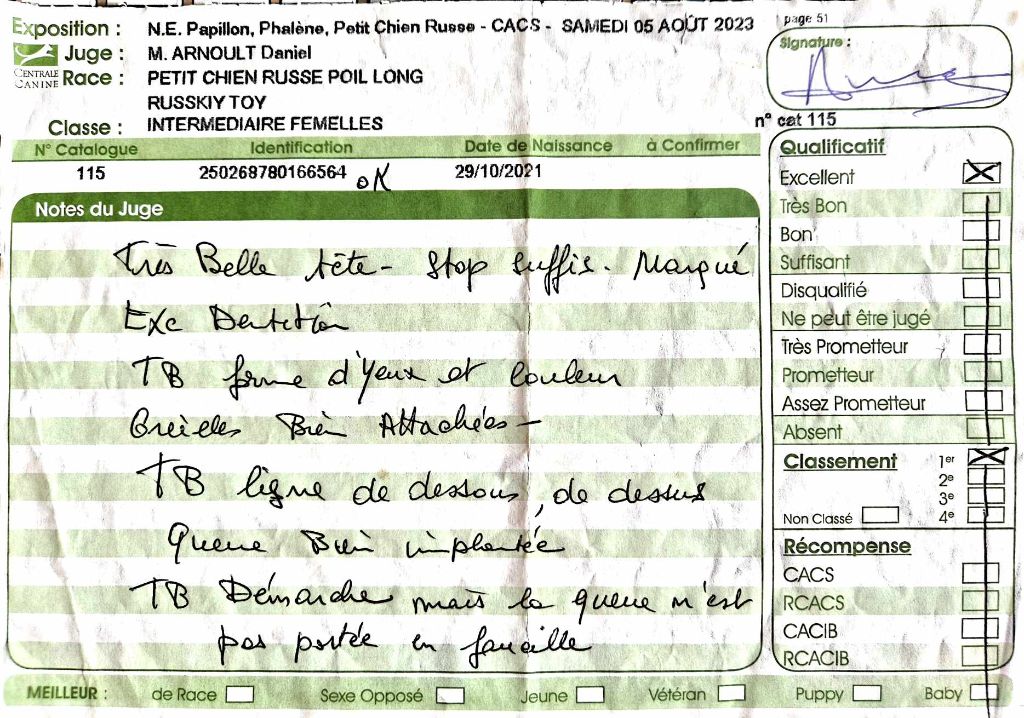 Exposition : N.E. Papillon, Phalène, Petit Chien Russe - CACS - SAMEDI 05 AOÛT 2023
page 51
Juge : M. ARNOULT Daniel
CENTRALE CANINE
Race : PETIT CHIEN RUSSE POIL LONG
RUSSKIY TOY
Classe : INTERMEDIAIRE FEMELLES
Signature :
n° cat 115
N° Catalogue Identification Date de Naissance à Confirmer
115 250269780166564 OK 29/10/2021
Notes du Juge
Très Belle tête - Stop suffis. Marqué
Exc Dentition
TB forme d'yeux et couleur
Oreilles Bien Attachées -
TB ligne de dessous, de dessus
Queue Bien implantée
TB Démarche mais la queue n'est
pas portée en faucille
Qualificatif
Excellent
Très Bon
Bon
Suffisant
Disqualifié
Ne peut être jugé
Très Prometteur
Prometteur
Assez Prometteur
Absent
Classement 1er
2e
3e
Non Classé 4e
Récompense
CACS
RCACS
CACIB
RCACIB
MEILLEUR : de Race Sexe Opposé Jeune Vétéran Puppy Baby